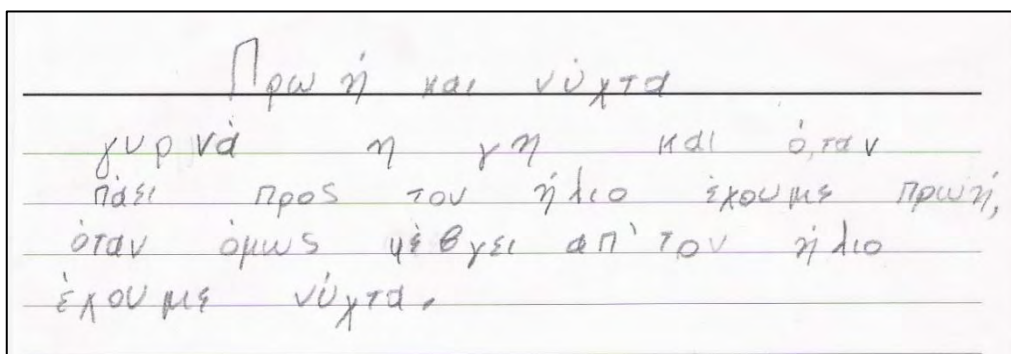 Πρωή και νύχτα
γυρνά η γη και ό,ταν
πάει προς τον ήλιο έχουμε πρωή,
όταν όμως φέβγει απ' τον ήλιο
έχουμε νύχτα.